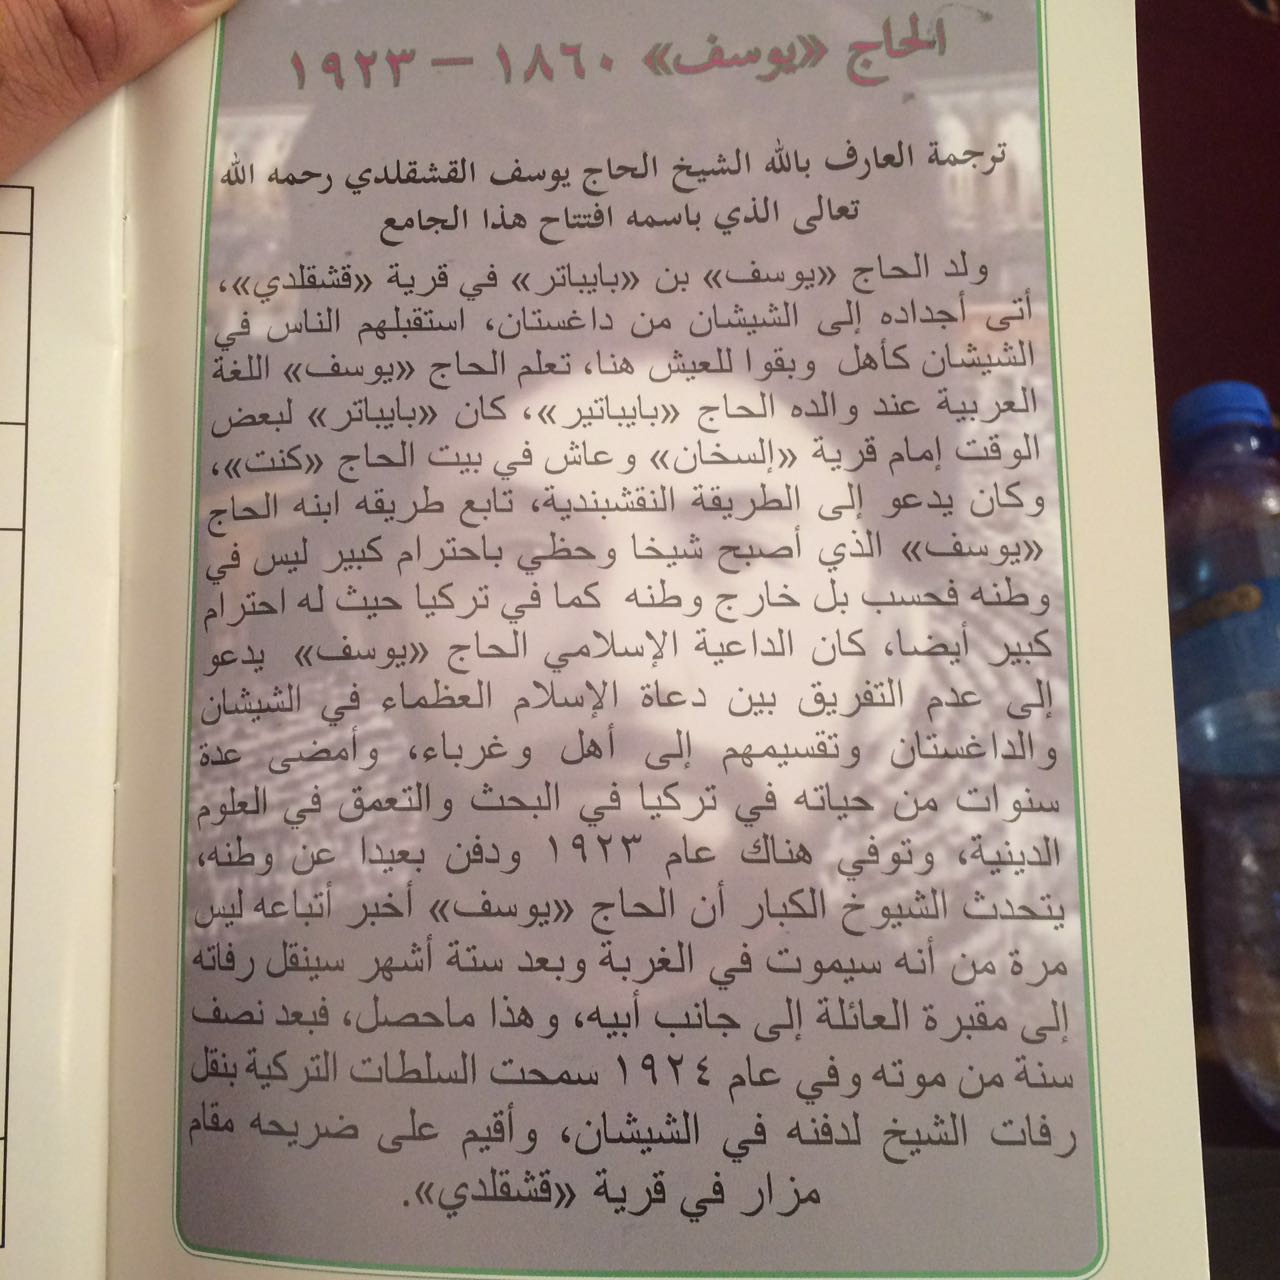 الحاج «يوسف» ١٨٦٠ – ١٩٢٣
ترجمة العارف بالله الشيخ الحاج يوسف القشقلدي رحمه الله
تعالى الذي باسمه افتتاح هذا الجامع
ولد الحاج «يوسف» بن «بايباتر» في قرية «قشقلدي»،
أتى أجداده إلى الشيشان من داغستان، استقبلهم الناس في
الشيشان كأهل وبقوا للعيش هنا، تعلم الحاج «يوسف» اللغة
العربية عند والده الحاج «بايباتير»، كان «بايباتر» لبعض
الوقت إمام قرية «إلسخان» وعاش في بيت الحاج «كنت»،
وكان يدعو إلى الطريقة النقشبندية، تابع طريقه ابنه الحاج
«يوسف» الذي أصبح شيخا وحظي باحترام كبير ليس في
وطنه فحسب بل خارج وطنه كما في تركيا حيث له احترام
كبير أيضا، كان الداعية الإسلامي الحاج «يوسف» يدعو
إلى عدم التفريق بين دعاة الإسلام العظماء في الشيشان
والداغستان وتقسيمهم إلى أهل وغرباء، وأمضى عدة
سنوات من حياته في تركيا في البحث والتعمق في العلوم
الدينية، وتوفي هناك عام ١٩٢٣ ودفن بعيدا عن وطنه،
يتحدث الشيوخ الكبار أن الحاج «يوسف» أخبر أتباعه ليس
مرة من أنه سيموت في الغربة وبعد ستة أشهر سينقل رفاته
إلى مقبرة العائلة إلى جانب أبيه، وهذا ماحصل، فبعد نصف
سنة من موته وفي عام ١٩٢٤ سمحت السلطات التركية بنقل
رفات الشيخ لدفنه في الشيشان، وأقيم على ضريحه مقام
مزار في قرية «قشقلدي».